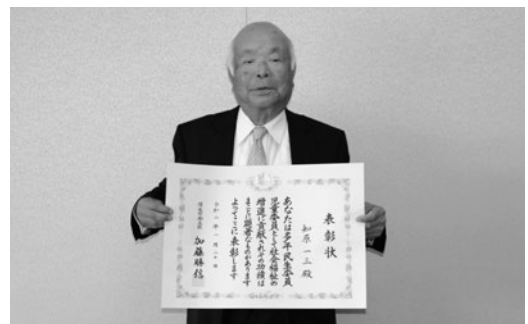 表彰状
知原一三殿
あなたは多年民生委員
児童委員として社会福祉の
増進に貢献されその功績は
まことに顕著なものがあります
よってここに表彰します
令和二年一月二十日
厚生労働大臣
加藤勝信